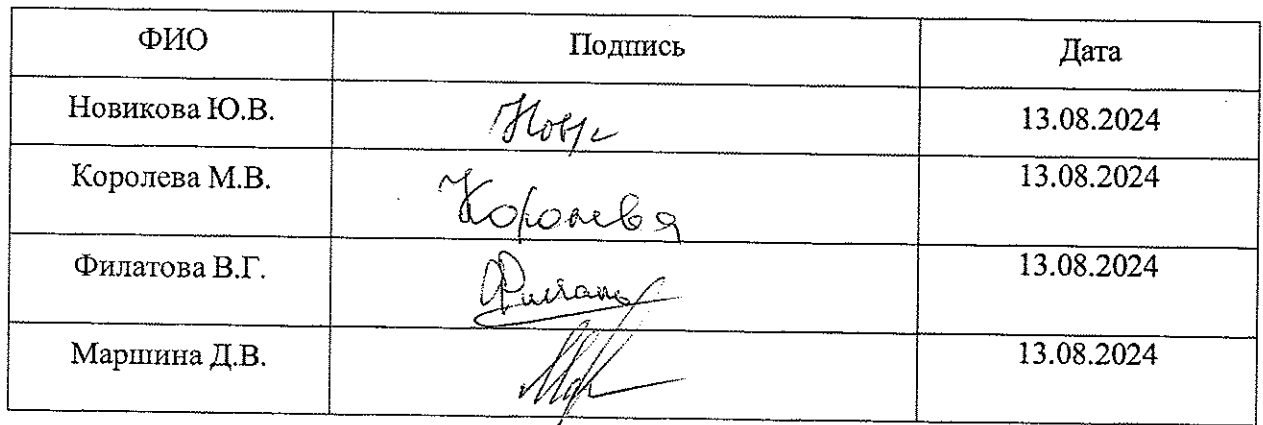 ФИО Подпись Дата
Новикова Ю.В. 13.08.2024
Королева М.В. Королева 13.08.2024
Филатова В.Г. 13.08.2024
Маршина Д.В. 13.08.2024